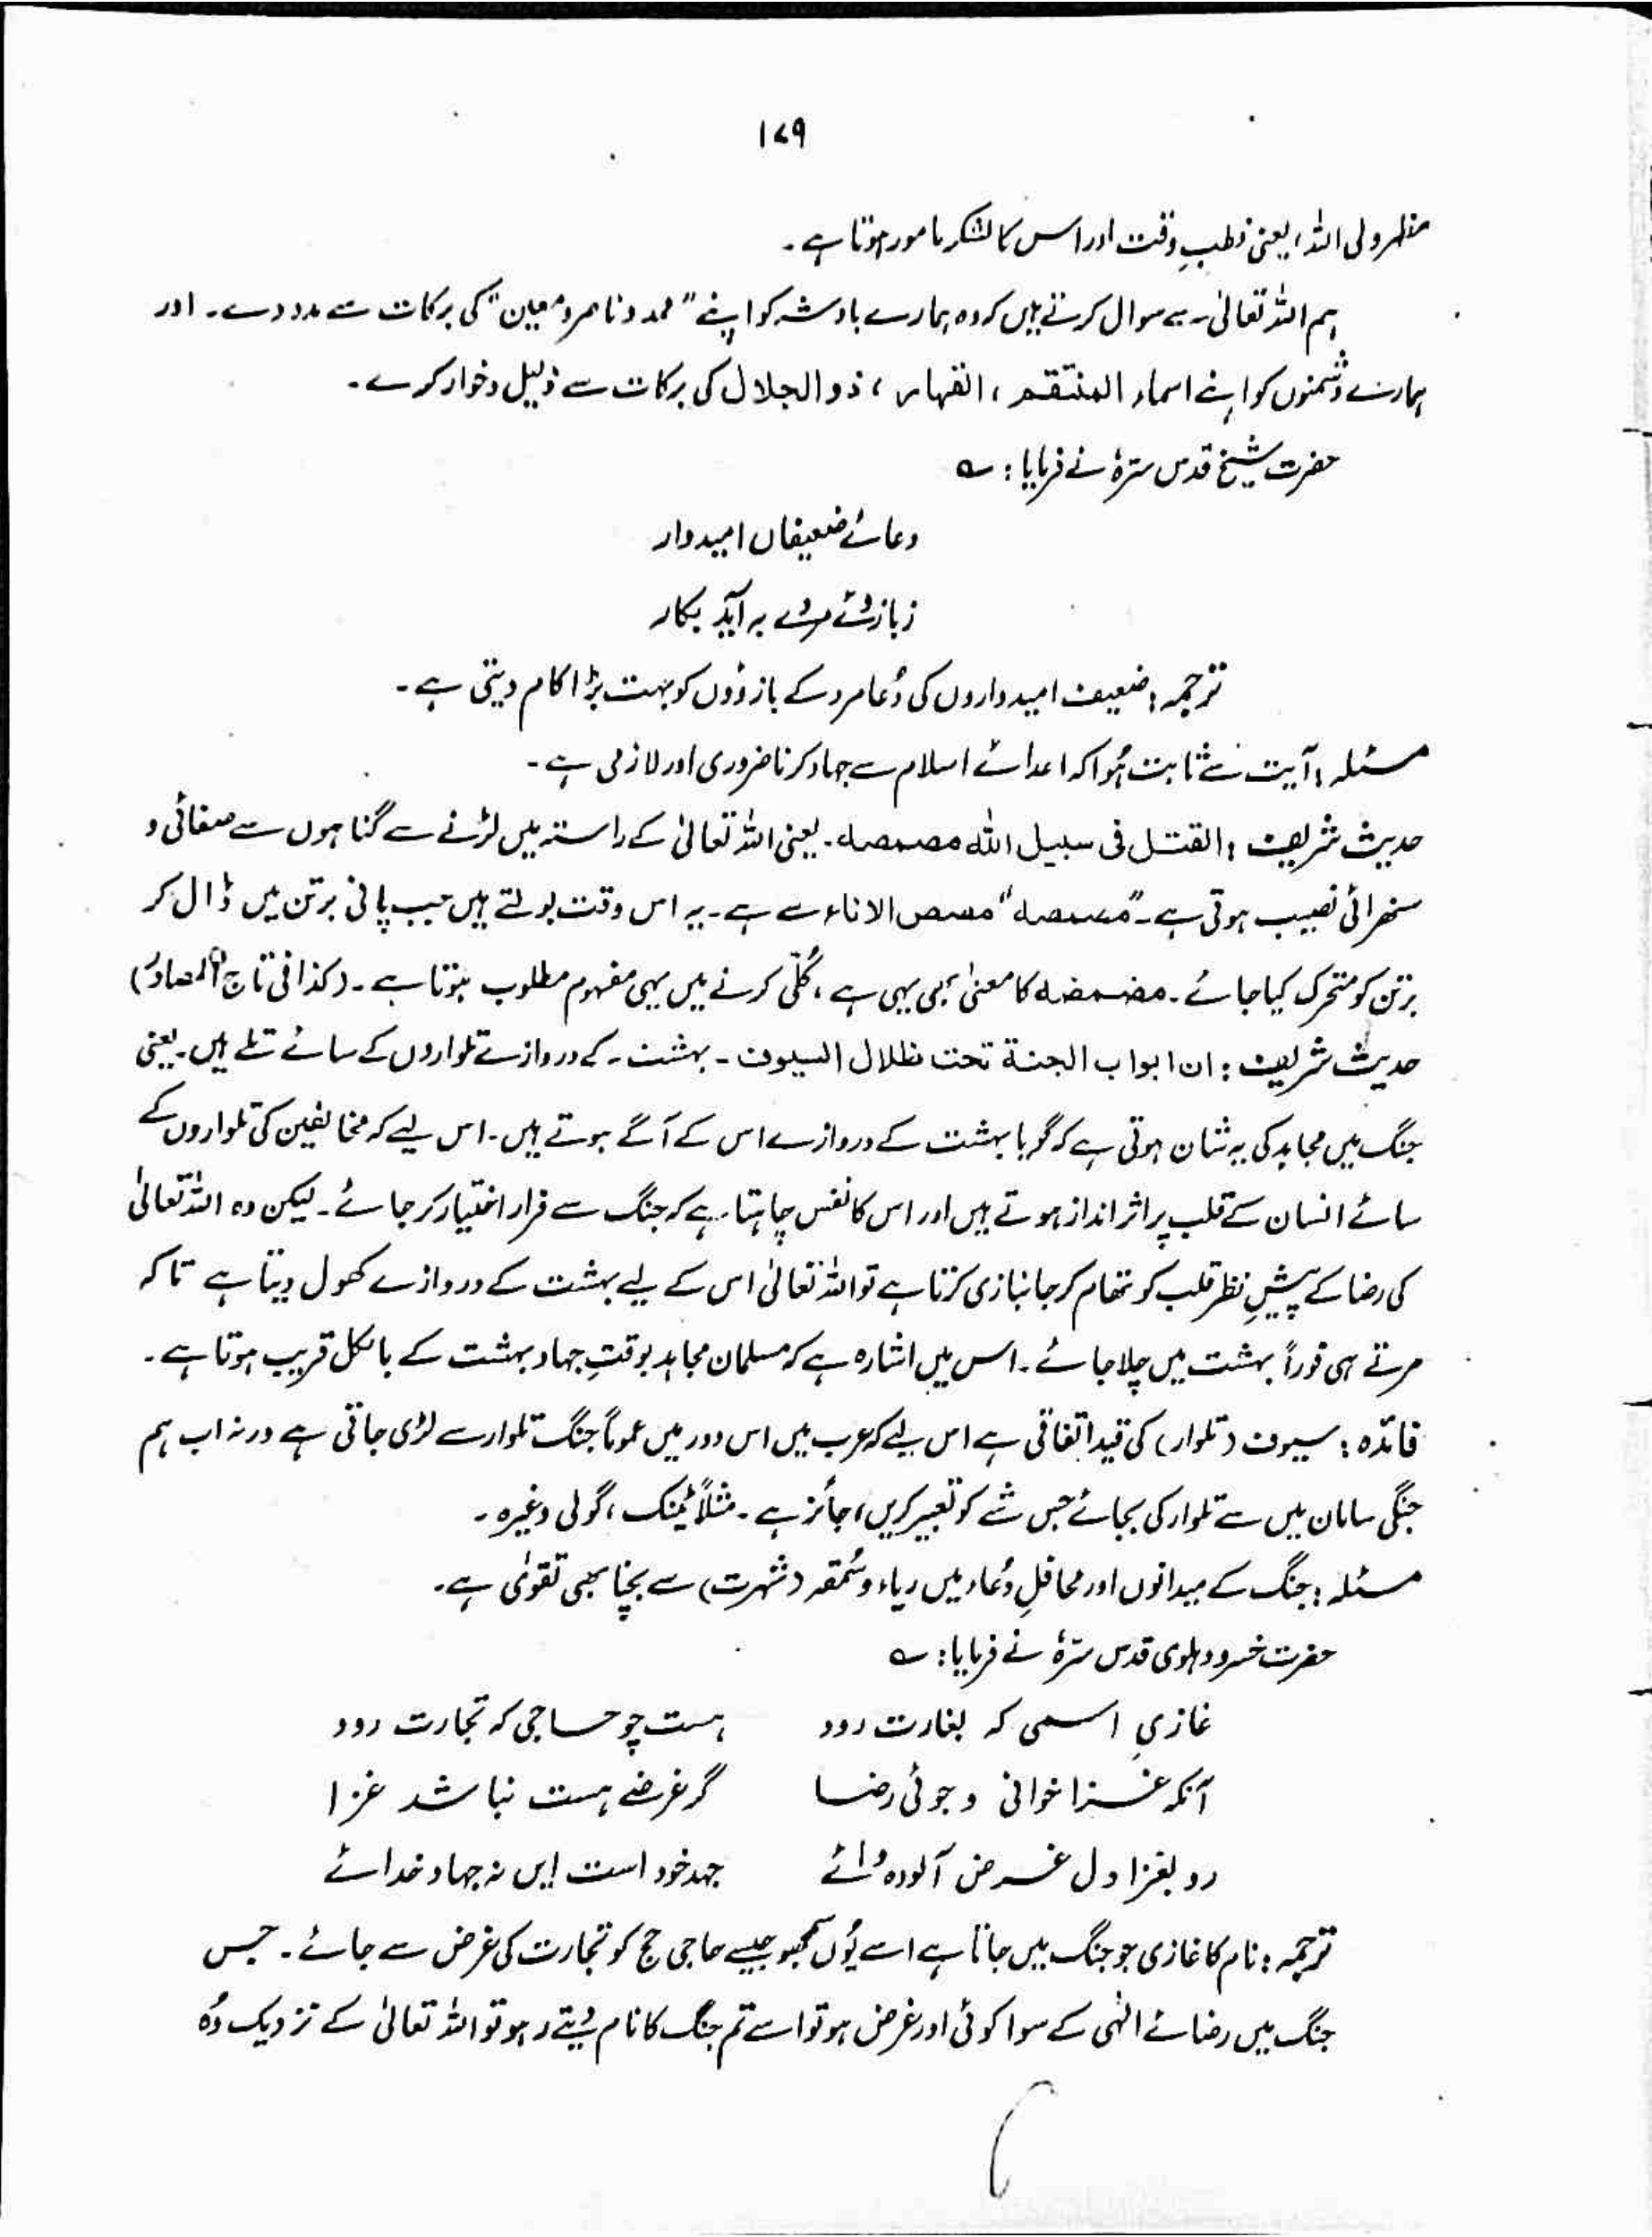 ۱۷۹
مظہر ولی اللہ، یعنی قطبِ وقت اور اس کا لشکر مامور ہوتا ہے۔
ہم اللہ تعالیٰ سے سوال کرتے ہیں کہ وہ ہمارے بادشہ کو اپنے "ممد و ناصر و معین" کی برکات سے مدد دے۔ اور
ہمارے دشمنوں کو اپنے اسماء المنتقم، القهار، ذوالجلال کی برکات سے ذلیل و خوار کرے۔
حضرت شیخ قدس سرّہٗ نے فرمایا: ؎
دعائے ضعیفاں امیدوار
زبازوئے مردے بہ آید بکار
ترجمہ: ضعیف امیدواروں کی دُعا مرد کے بازوؤں کو بہت بڑا کام دیتی ہے۔
مسئلہ: آیت سے ثابت ہُوا کہ اعدائے اسلام سے جہاد کرنا ضروری اور لازمی ہے۔
حدیث شریف: القتل فی سبیل الله مصمصه۔ یعنی اللہ تعالیٰ کے راستہ میں لڑنے سے گناہوں سے صفائی و
ستھرائی نصیب ہوتی ہے۔ "مصمصه" مصمص الاناء سے ہے۔ یہ اس وقت بولتے ہیں جب پانی برتن میں ڈال کر
برتن کو متحرک کیا جائے۔ مضمضه کا معنیٰ بھی یہی ہے، کُلّی کرنے میں یہی مفہوم مطلوب ہوتا ہے۔ (کذا فی تاج المصادر)
حدیث شریف: ان ابواب الجنة تحت ظلال السیوف۔ بہشت۔ کے دروازے تلواروں کے سائے تلے ہیں۔ یعنی
جنگ میں مجاہد کی یہ شان ہوتی ہے کہ گویا بہشت کے دروازے اس کے آگے ہوتے ہیں۔ اس لیے کہ مخالفین کی تلواروں کے
سائے انسان کے قلب پر اثر انداز ہوتے ہیں اور اس کا نفس چاہتا ہے کہ جنگ سے فرار اختیار کر جائے۔ لیکن وہ اللہ تعالیٰ
کی رضا کے پیشِ نظر قلب کو تھام کر جانبازی کرتا ہے تو اللہ تعالیٰ اس کے لیے بہشت کے دروازے کھول دیتا ہے تاکہ
مرتے ہی فوراً بہشت میں چلا جائے۔ اس میں اشارہ ہے کہ مسلمان مجاہد بوقتِ جہاد بہشت کے بالکل قریب ہوتا ہے۔
فائدہ: سیوف (تلوار) کی قید اتفاقی ہے اس لیے کہ عرب میں اس دور میں عموماً جنگ تلوار سے لڑی جاتی ہے ورنہ اب ہم
جنگی سامان میں سے تلوار کی بجائے جس شے کو تعبیر کریں، جائز ہے۔ مثلاً ٹینک، گولی وغیرہ۔
مسئلہ: جنگ کے میدانوں اور محافلِ دُعاء میں ریاء و سُمعہ (شہرت) سے بچنا بھی تقویٰ ہے۔
حضرت خسرو دہلوی قدس سرّہٗ نے فرمایا: ؎
غازیِ اسمی کہ بغارت رود ہست چو حاجی کہ تجارت رود
آنکہ غزا خوانی و جوئی رضا گر غرضے ہست نباشد غزا
رو بغزا دل غرض آلودہ وائے جہد خود است ایں نہ جہاد خدائے
ترجمہ: نام کا غازی جو جنگ میں جاتا ہے اسے یُوں سمجھو جیسے حاجی حج کو تجارت کی غرض سے جائے۔ جس
جنگ میں رضائے الٰہی کے سوا کوئی اور غرض ہو تو اسے تم جنگ کا نام دیتے رہو تو اللہ تعالیٰ کے نزدیک وُہ